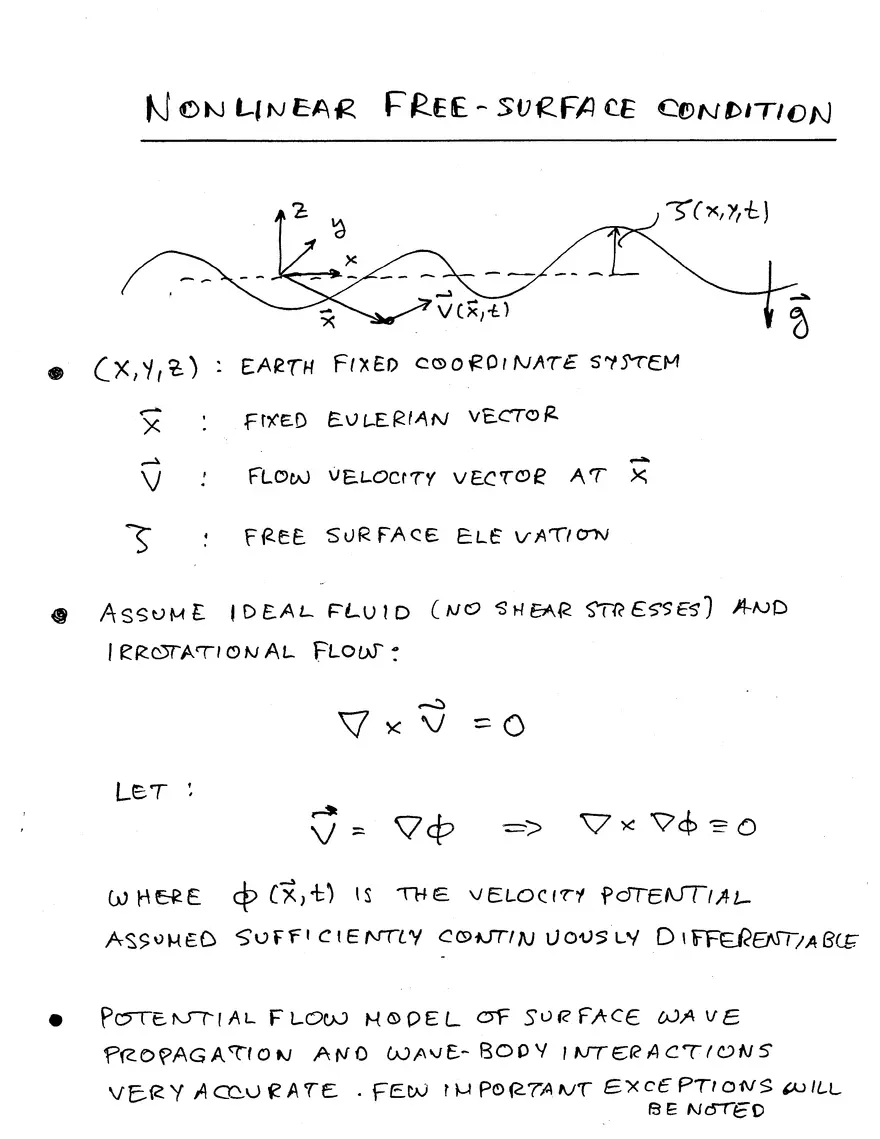 NONLINEAR FREE-SURFACE CONDITION
z
y
x
ζ(x,y,t)
x⃗
v⃗(x⃗,t)
g⃗
● (x,y,z) : EARTH FIXED COORDINATE SYSTEM
x⃗ : FIXED EULERIAN VECTOR
v⃗ : FLOW VELOCITY VECTOR AT x⃗
ζ : FREE SURFACE ELEVATION
● ASSUME IDEAL FLUID (NO SHEAR STRESSES) AND
IRROTATIONAL FLOW :
∇ × v⃗ = 0
LET :
v⃗ = ∇ϕ => ∇ × ∇ϕ ≡ 0
WHERE ϕ(x⃗,t) IS THE VELOCITY POTENTIAL
ASSUMED SUFFICIENTLY CONTINUOUSLY DIFFERENTIABLE
● POTENTIAL FLOW MODEL OF SURFACE WAVE
PROPAGATION AND WAVE-BODY INTERACTIONS
VERY ACCURATE . FEW IMPORTANT EXCEPTIONS WILL
BE NOTED